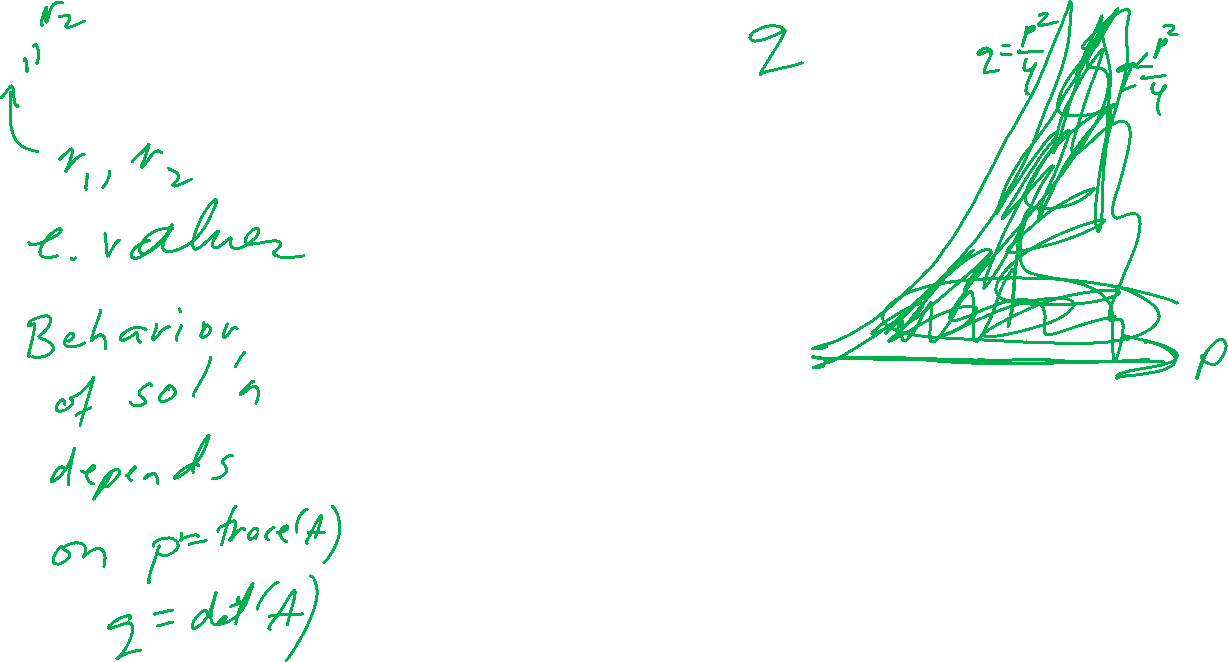 r₂
r₁, r₂
e. values
Behavior
of sol'n
depends
on p = trace(A)
q = det(A)
q
q = p²/4
p²/4
p